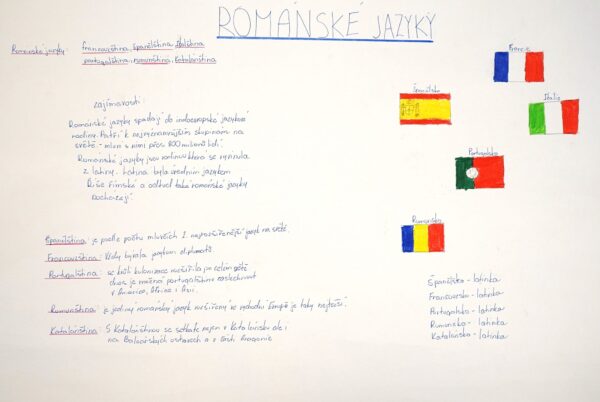 ROMÁNSKÉ JAZYKY
Románské jazyky: francouzština, španělština, italština
portugalština, rumunština, katalánština
Francie
Španělsko
Itálie
Portugalsko
Rumunsko
zajímavosti:
Románské jazyky spadají do indoevropské jazykové
rodiny. Patří k nejvýznamnějším skupinám na
světě - mluví s nimi přes 800 milionů lidí
Románské jazyky jsou rodinou která se vyvinula
z latiny. Latina byla úředním jazykem
Říše Římské a odtud také románské jazyky
pocházejí
Španělština: je podle počtu mluvčích 2. nejrozšířenější jazyk na světě.
Francouzština: Vždy bývala jazykem diplomatů.
Portugalština: se kvůli kolonizaci rozšířila po celém světě
dnes je možná portugalštinu zaslechnout
v Americe, Africe i Asii.
Rumunština: je jediný románský jazyk rozšířený ve východní Evropě je taky nejtěžší.
Katalánština: S Katalánštinou se setkáte nejen v Katalánsku ale i
na Baleárských ostrovech a v části Aragonie
Španělsko - latinka
Francouzsko - latinka
Portugalsko - latinka
Rumunsko - latinka
Katalánsko - latinka